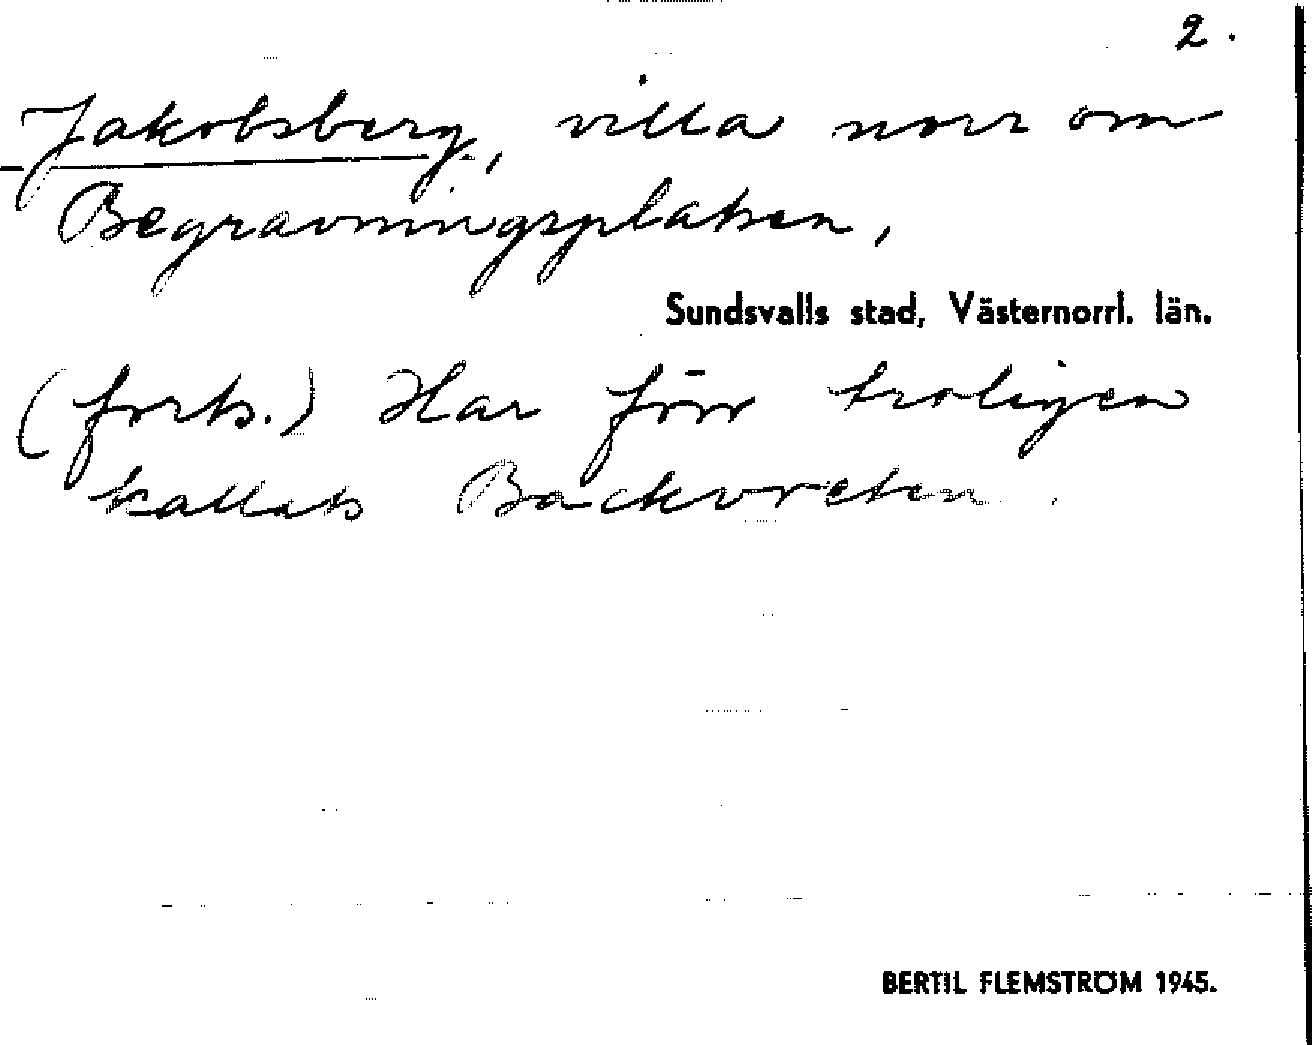 2.
Jakobsberg, villa norr om
Begravningsplatsen,
Sundsvalls stad, Västernorrl. län.
(forts.) Har förr troligen
kallats Backvreten.
BERTIL FLEMSTRÖM 1945.